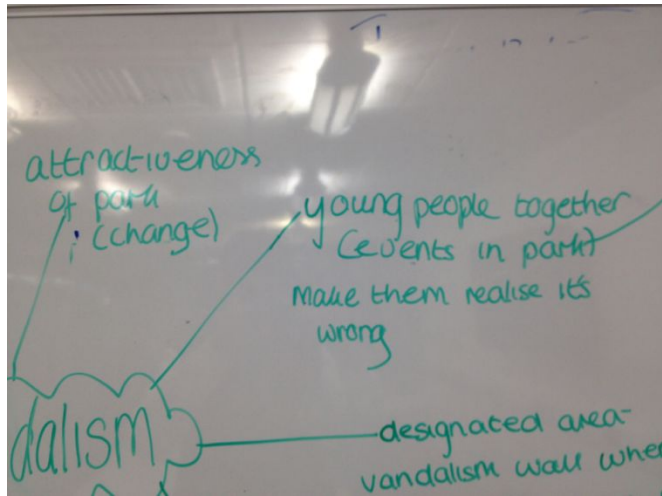 attractiveness
of park
(change)
young people together
(events in park)
make them realise it's
wrong
dalism
designated area-
vandalism wall wher